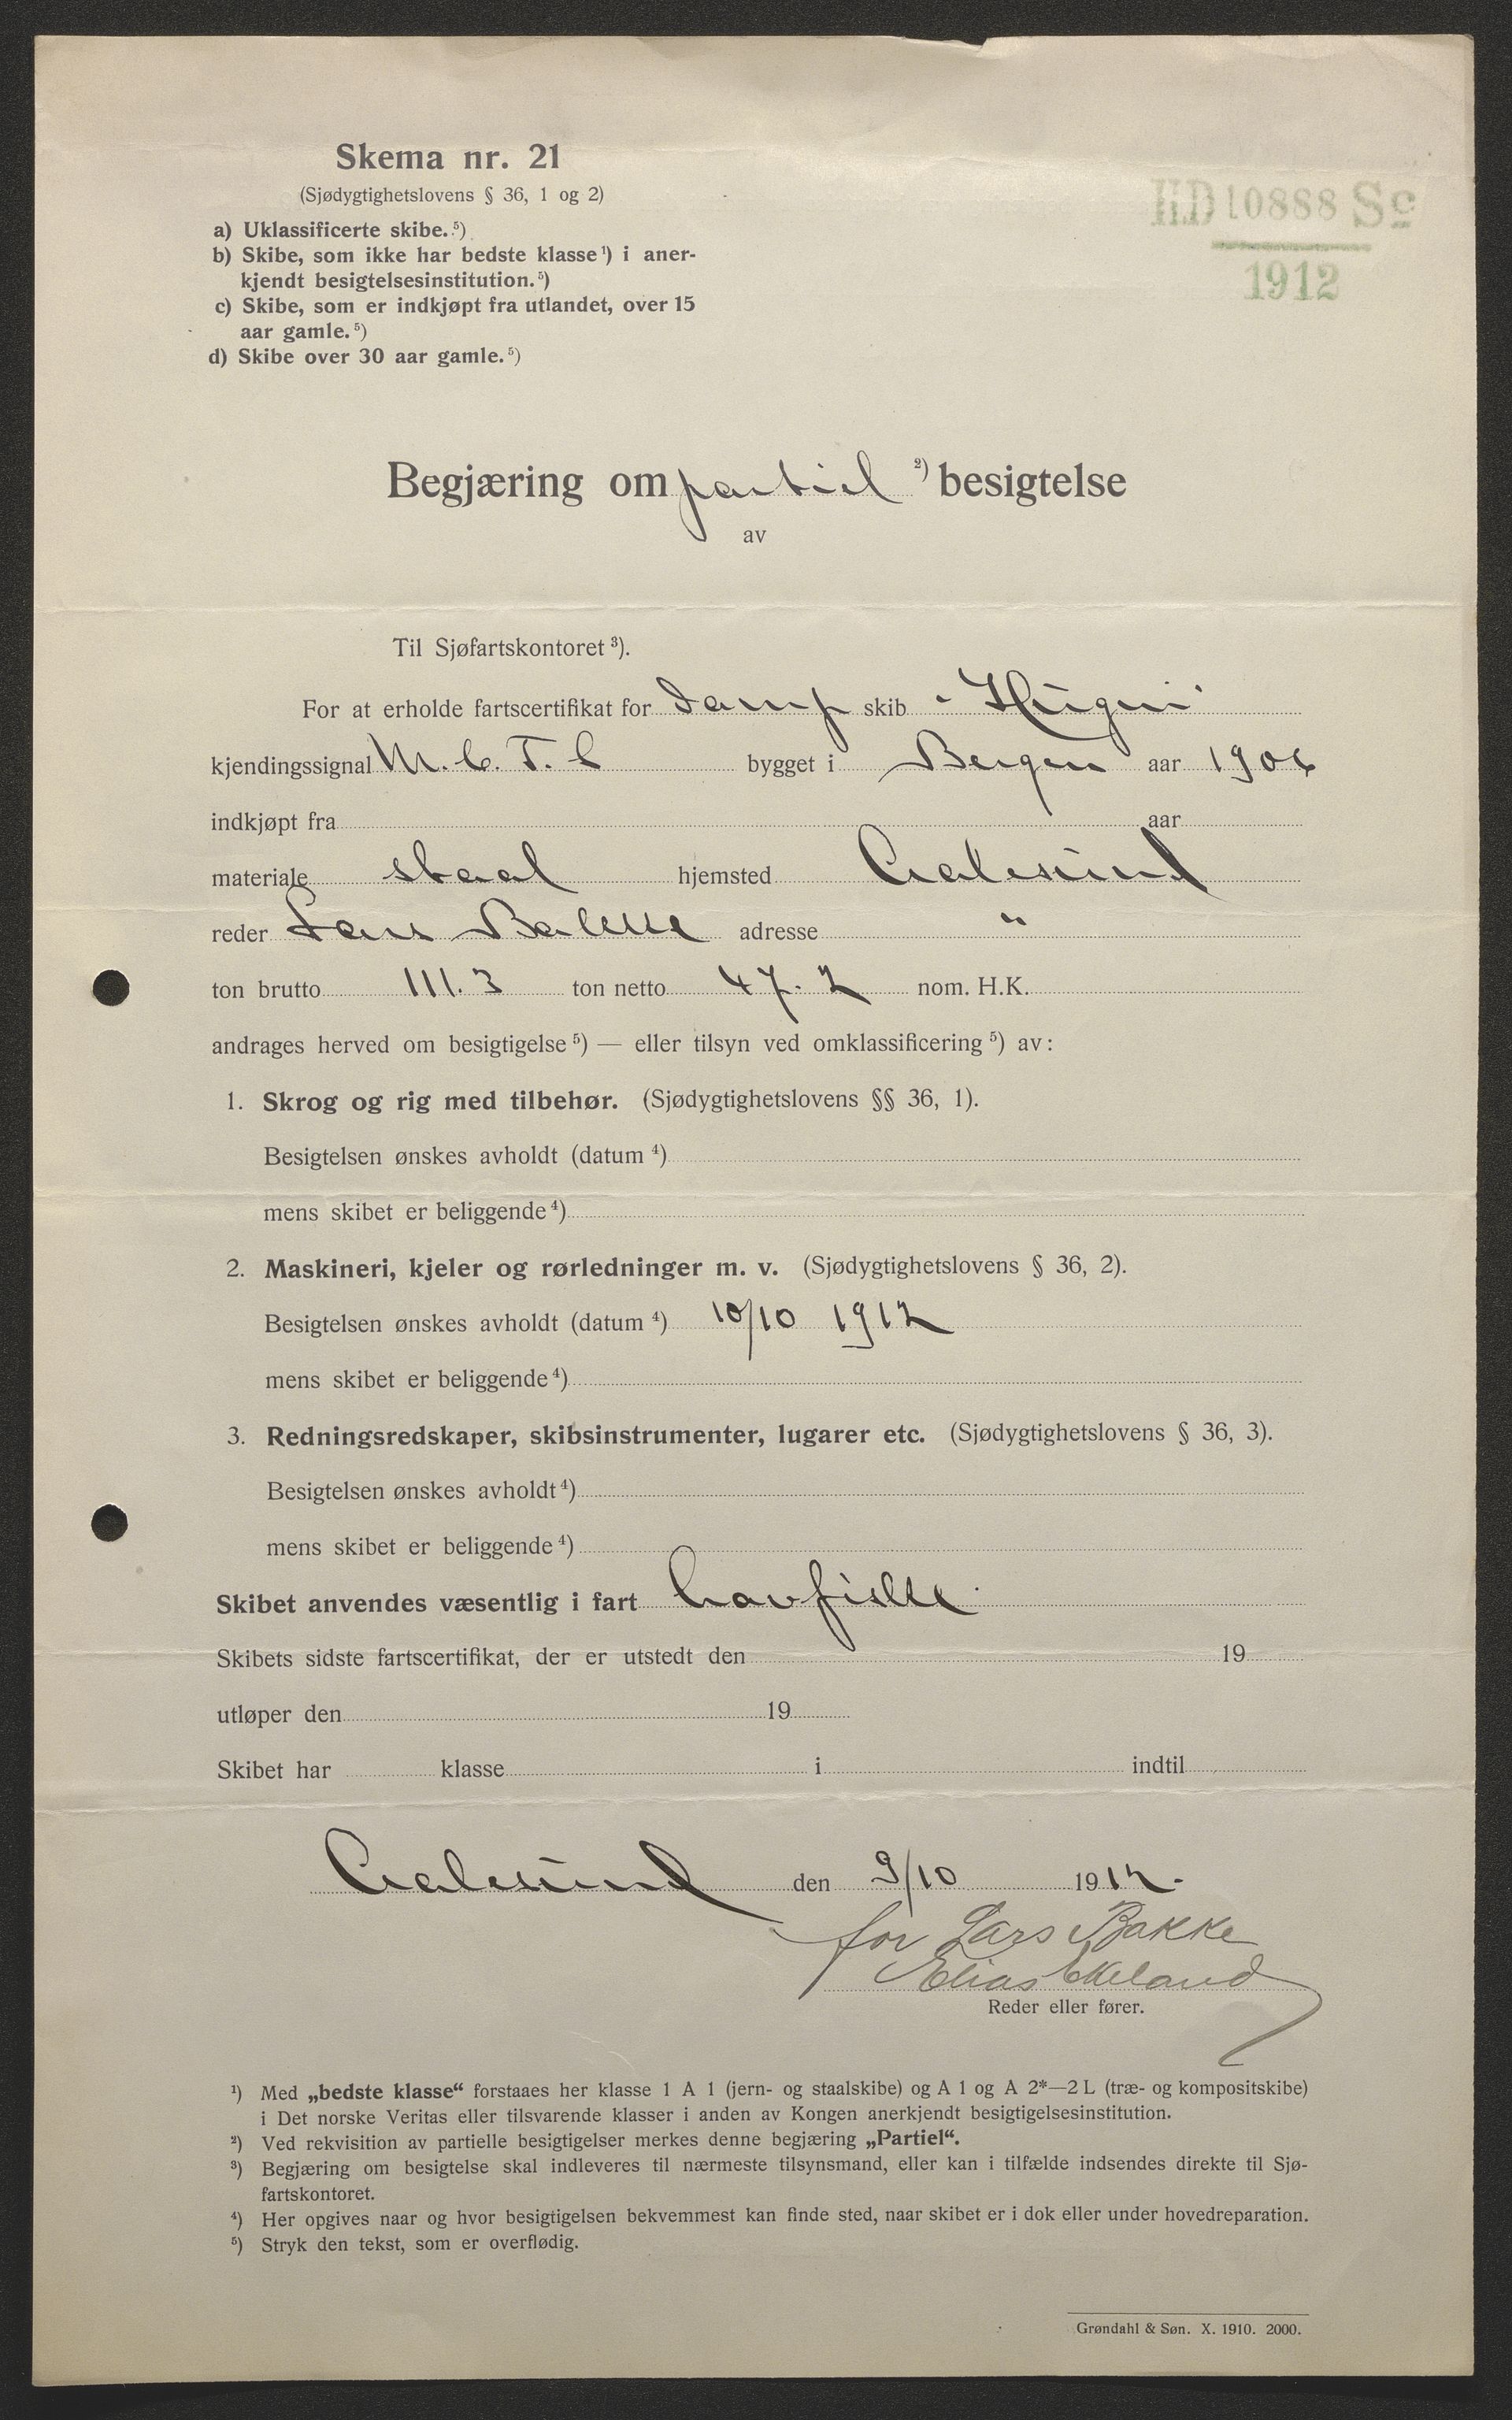 Skema nr. 21
(Sjødygtighetslovens § 36, 1 og 2)
a) Uklassificerte skibe.⁵)
b) Skibe, som ikke har bedste klasse¹) i aner-
kjendt besigtelsesinstitution.⁵)
c) Skibe, som er indkjøpt fra utlandet, over 15
aar gamle.⁵)
d) Skibe over 30 aar gamle.⁵)
H.D 10888 Sc
1912
Begjæring om partiel ²) besigtelse
av
Til Sjøfartskontoret ³).
For at erholde fartscertifikat for Damp skib "Hugin"
kjendingssignal M. C. T. bygget i Bergen aar 1906
indkjøpt fra aar
materiale staal hjemsted Aalesund
reder Lars Bakke adresse "
ton brutto 111.3 ton netto 47.2 nom. H.K.
andrages herved om besigtigelse ⁵) — eller tilsyn ved omklassificering ⁵) av:
1. Skrog og rig med tilbehør. (Sjødygtighetslovens §§ 36, 1).
Besigtelsen ønskes avholdt (datum ⁴)
mens skibet er beliggende ⁴)
2. Maskineri, kjeler og rørledninger m. v. (Sjødygtighetslovens § 36, 2).
Besigtelsen ønskes avholdt (datum ⁴) 10/10 1912
mens skibet er beliggende ⁴)
3. Redningsredskaper, skibsinstrumenter, lugarer etc. (Sjødygtighetslovens § 36, 3).
Besigtelsen ønskes avholdt ⁴)
mens skibet er beliggende ⁴)
Skibet anvendes væsentlig i fart havfiske
Skibets sidste fartscertifikat, der er utstedt den 19
utløper den 19
Skibet har klasse i indtil
Aalesund den 9/10 1912.
for Lars Bakke
Elias
Reder eller fører.
¹) Med „bedste klasse“ forstaaes her klasse 1 A 1 (jern- og staalskibe) og A 1 og A 2*—2 L (træ- og kompositskibe)
i Det norske Veritas eller tilsvarende klasser i anden av Kongen anerkjendt besigtigelsesinstitution.
²) Ved rekvisition av partielle besigtigelser merkes denne begjæring „Partiel“.
³) Begjæring om besigtelse skal indleveres til nærmeste tilsynsmand, eller kan i tilfælde indsendes direkte til Sjø-
fartskontoret.
⁴) Her opgives naar og hvor besigtigelsen bekvemmest kan finde sted, naar skibet er i dok eller under hovedreparation.
⁵) Stryk den tekst, som er overflødig.
Grøndahl & Søn. X. 1910. 2000.